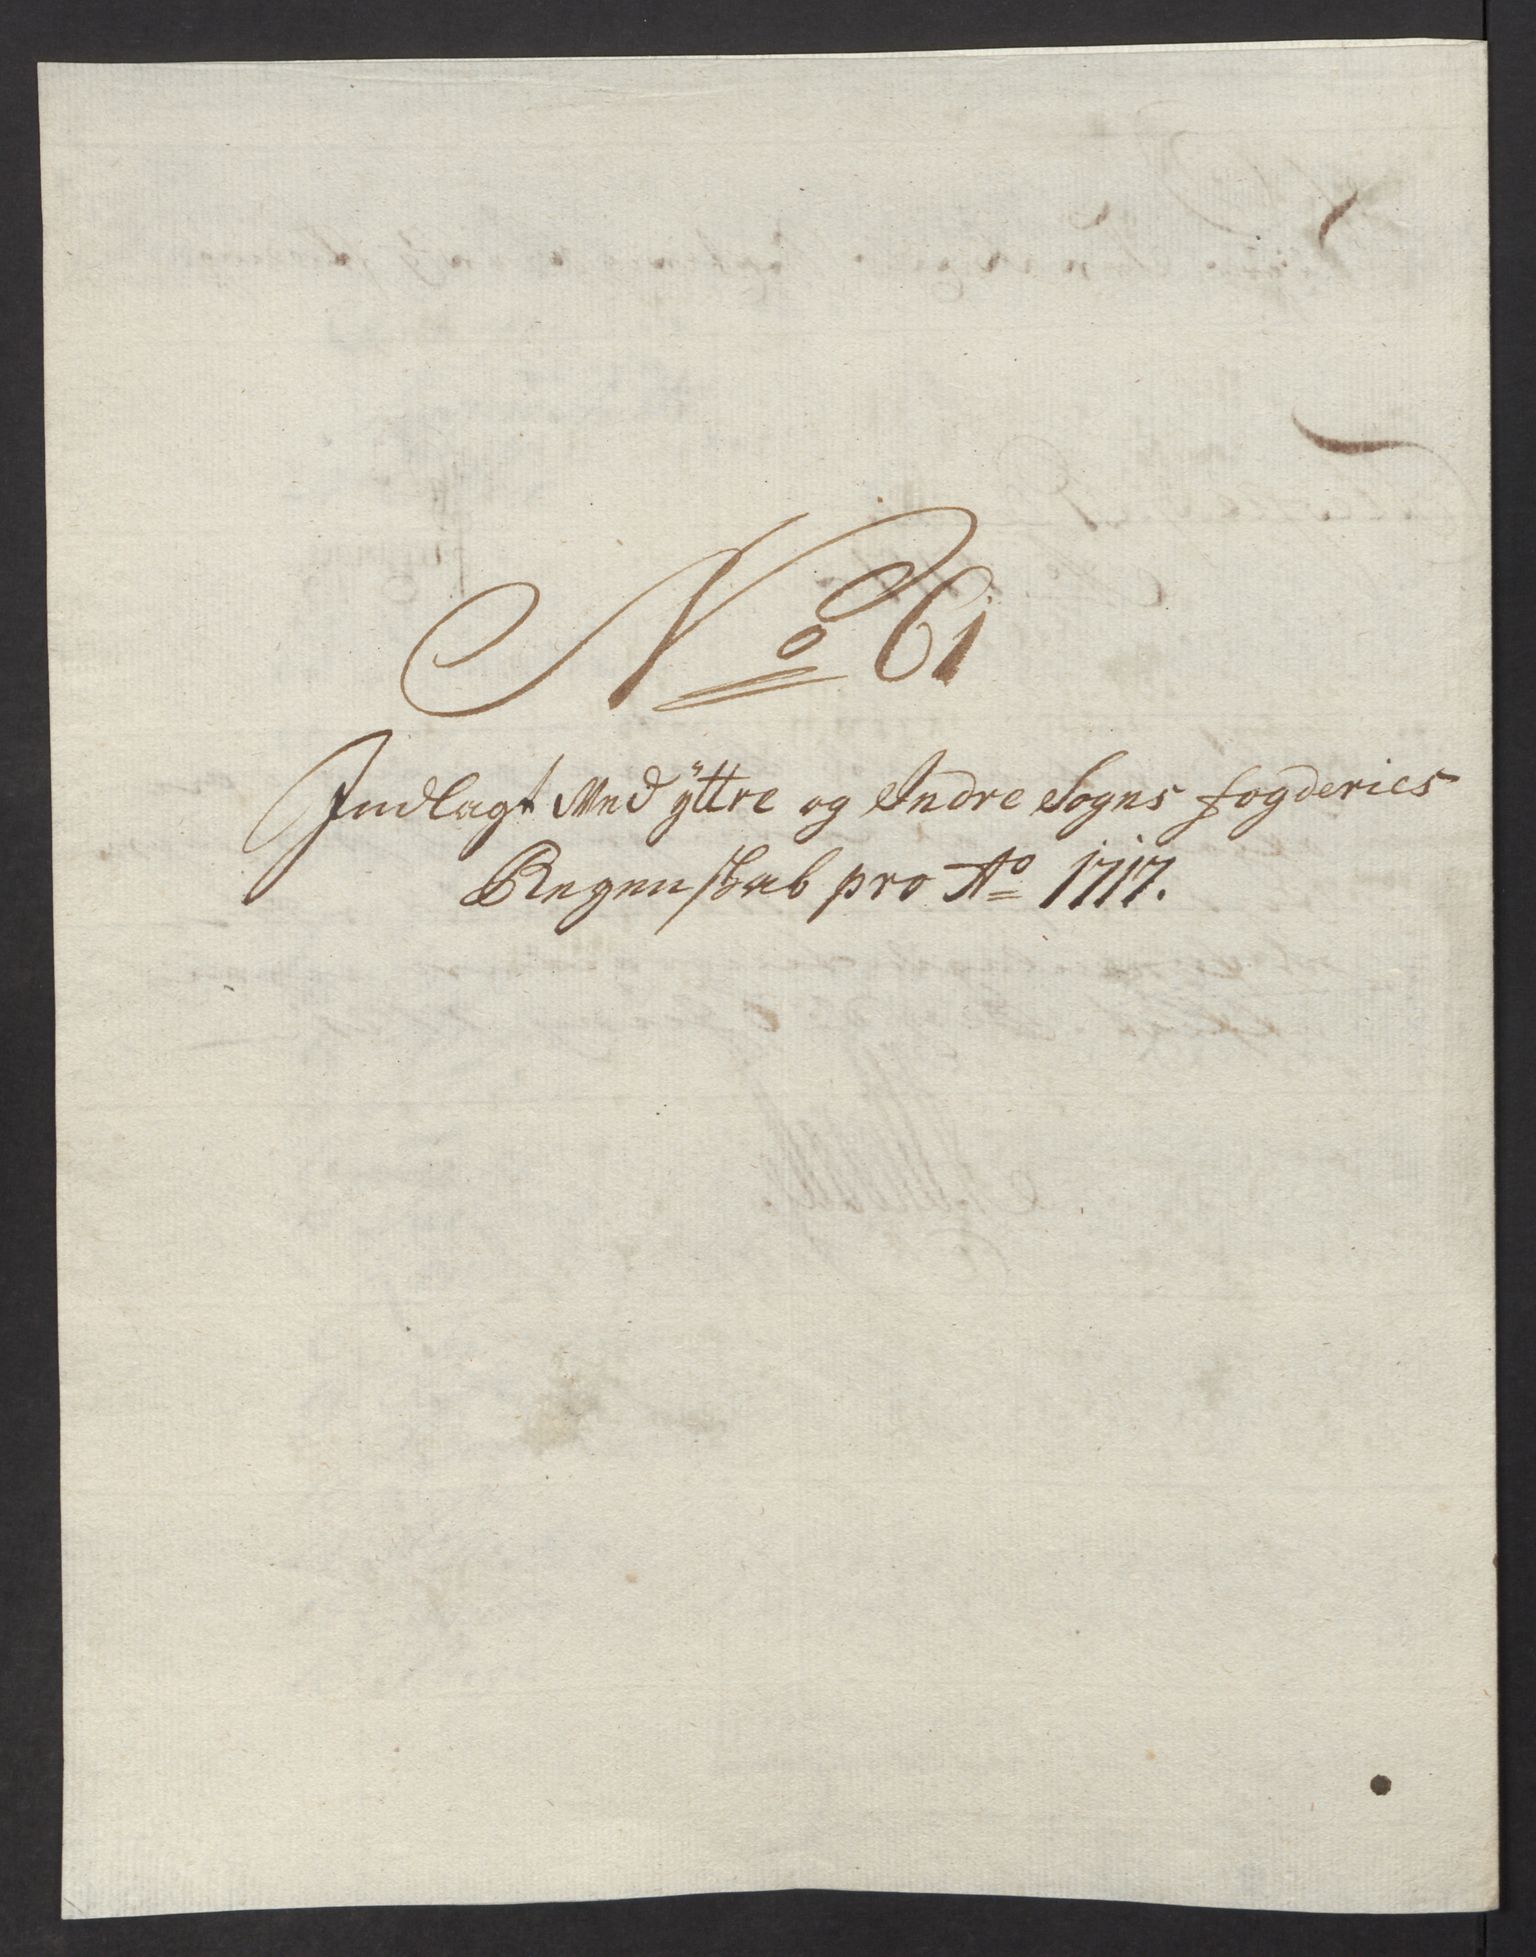 No 61
Indlagt Med ÿttre og Indre Sogns fogderies
Regenskab pro Ao 1717.